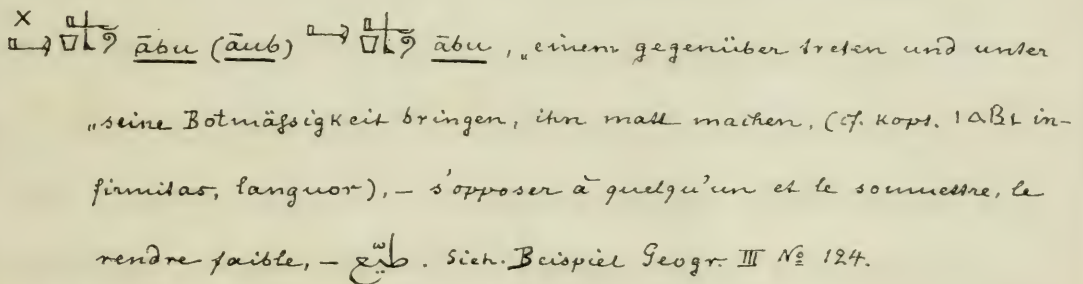 ābu (āub) ābu, „einem gegenüber treten und unter
„seine Botmäſsigkeit bringen, ihn matt machen, (cf. Kopt. ⲓⲁⲃⲓ in-
firmitas, languor), – s'opposer à quelqu'un et le soumettre, le
rendre faible, – . Sieh. Beispiel Geogr. III № 124.